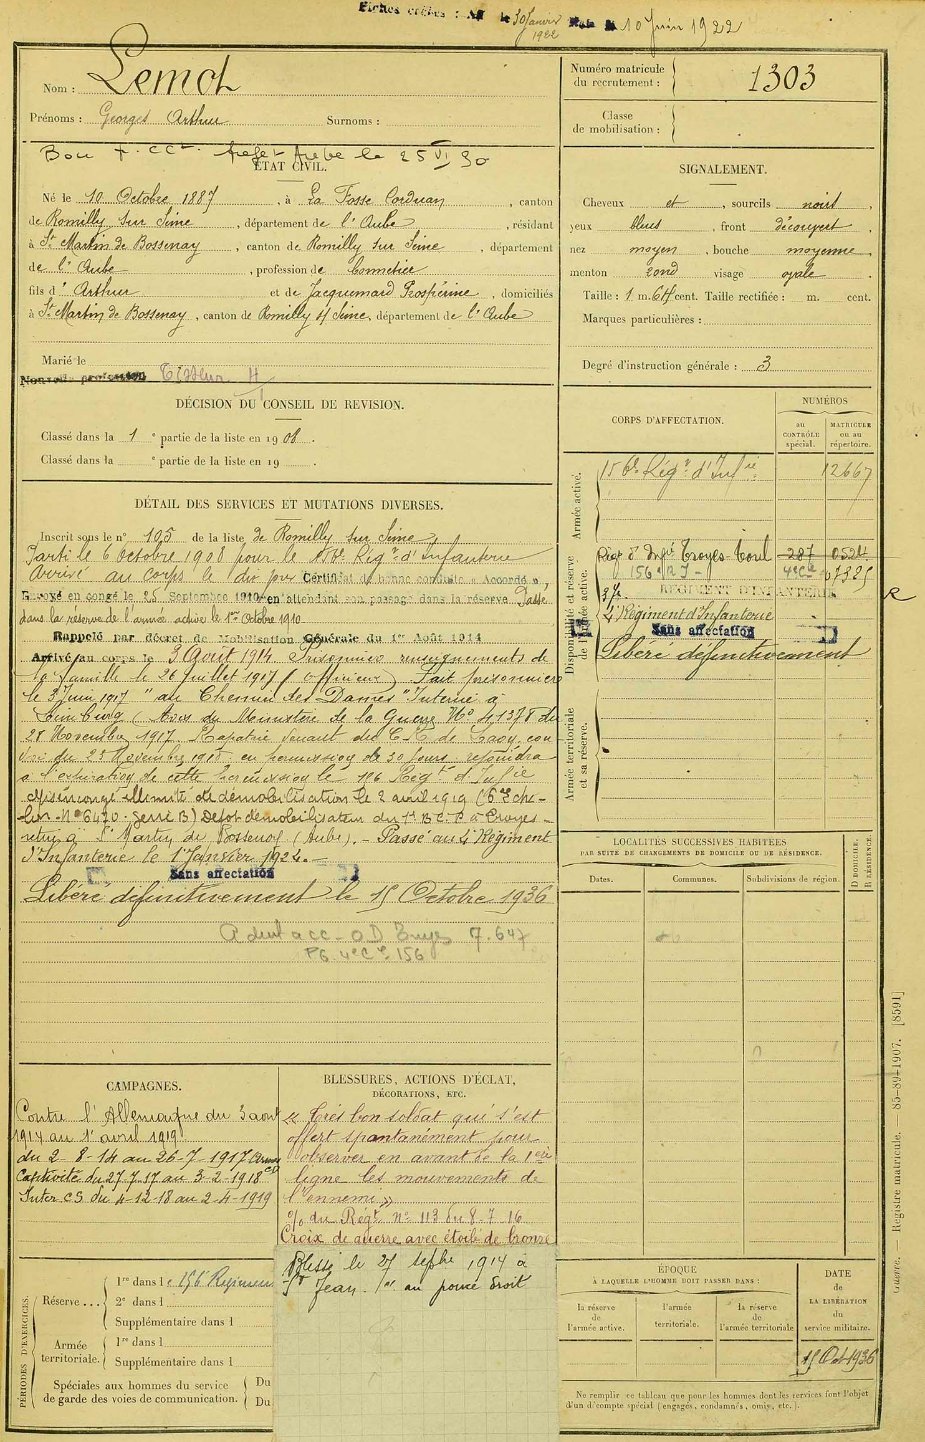 Fiches créées : le 30 Janvier 1922 le 10 Juin 1922
Nom : Lemot
Prénoms : Georges Arthur Surnoms :
Numéro matricule du recrutement : 1303
Classe de mobilisation :
Bon le 25 VI 30
ÉTAT CIVIL.
Né le 10 Octobre 1887, à La Fosse Corduan, canton
de Romilly sur Seine, département de l'Aube, résidant
à St Martin de Bossenay, canton de Romilly sur Seine, département
de l'Aube, profession de bonnetier
fils d' Arthur et de Jacquemard Prospérine, domiciliés
à St Martin de Bossenay, canton de Romilly s/ Seine, département de l'Aube
Marié le
Nouvelle profession
SIGNALEMENT.
Cheveux et, sourcils noirs,
yeux bleus, front découvert,
nez moyen, bouche moyenne,
menton rond visage ovale.
Taille : 1 m. 64 cent. Taille rectifiée : m. cent.
Marques particulières :
Degré d'instruction générale : 3
DÉCISION DU CONSEIL DE REVISION.
Classé dans la 1e partie de la liste en 1908.
Classé dans la e partie de la liste en 19 .
DÉTAIL DES SERVICES ET MUTATIONS DIVERSES.
Inscrit sous le no 105 de la liste de Romilly sur Seine
Parti le 6 Octobre 1908 pour le 156e Régt d'Infanterie
Arrivé au corps le dit jour Certificat de bonne conduite « Accordé »,
Envoyé en congé le 25 Septembre 1910 en attendant son passage dans la réserve Passé
dans la réserve de l'armée active le 1er Octobre 1910
Rappelé par décret de Mobilisation Générale du 1er Août 1914
Arrivé au corps le 3 Août 1914. Prisonnier renseignements de
la famille le 26 Juillet 1917 (officieux) Fait prisonnier
le 3 Juin 1917 "au Chemin des Dames" Interné à
Limburg (Avis du Ministère de la Guerre No 41378 du
28 Novembre 1917. Rapatrié venant du
en permission de 30 jours rejoindra
à l'expiration de cette permission le 156 Régt d'Infie
Mis en congé illimité de démobilisation le 2 avril 1919 (6e éche-
lon - No 6470 - Série B) Dépôt démobilisateur du 1er B.C.P à Troyes -
retiré à St Martin de Bossenay (Aube). - Passé au 4e Régiment
d'Infanterie le 1er Janvier 1924. -
Sans affectation
Libéré définitivement le 15 Octobre 1936
7.647
4e Cie 156
CORPS D'AFFECTATION.
NUMÉROS
au CONTRÔLE spécial.
MATRICULE ou au répertoire.
Armée active.
156e Régt d'Infie 12667
Disponibilité et réserve de l'armée active.
Régt d'Infie Troyes-Toul 287 0524
156e R I 4e Cie 07325
RÉGIMENT D'INFANTERIE
R
4e Régiment d'Infanterie
Sans affectation
Libéré définitivement
Armée territoriale et sa réserve.
LOCALITÉS SUCCESSIVES HABITÉES
PAR SUITE DE CHANGEMENTS DE DOMICILE OU DE RÉSIDENCE.
Dates. Communes. Subdivisions de région. D DOMICILE. R RÉSIDENCE.
CAMPAGNES.
Contre l'Allemagne du 3 août
1914 au 1er avril 1919.
du 2-8-14 au 26-7-1917 Armées
Captivité du 27.7.17 au 3-2-1918
Inter. C.S. du 4-12-18 au 2-4-1919
BLESSURES, ACTIONS D'ÉCLAT,
DÉCORATIONS, ETC.
« Très bon soldat qui s'est
offert spontanément pour
observer en avant de la 1ère
ligne les mouvements de
l'ennemi »
% du Régt No 113 du 8.7.16
Croix de guerre avec étoile de bronze
Blessé le 27 septbre 1914 à
St Jean au pouce droit
PÉRIODES D'EXERCICES.
Réserve... 1re dans le 156 Régiment
2e dans l
Supplémentaire dans l
Armée territoriale. 1re dans l
Supplémentaire dans l
Spéciales aux hommes du service de garde des voies de communication. Du
Du
ÉPOQUE
À LAQUELLE L'HOMME DOIT PASSER DANS :
la réserve de l'armée active. l'armée territoriale. la réserve de l'armée territoriale
DATE de LA LIBÉRATION du service militaire.
15 Oct 1936
Ne remplir ce tableau que pour les hommes dont les services font l'objet
d'un décompte spécial (engagés, condamnés, omis, etc.).
Guerre. Registre matricule. 85-89-1907. [8591]